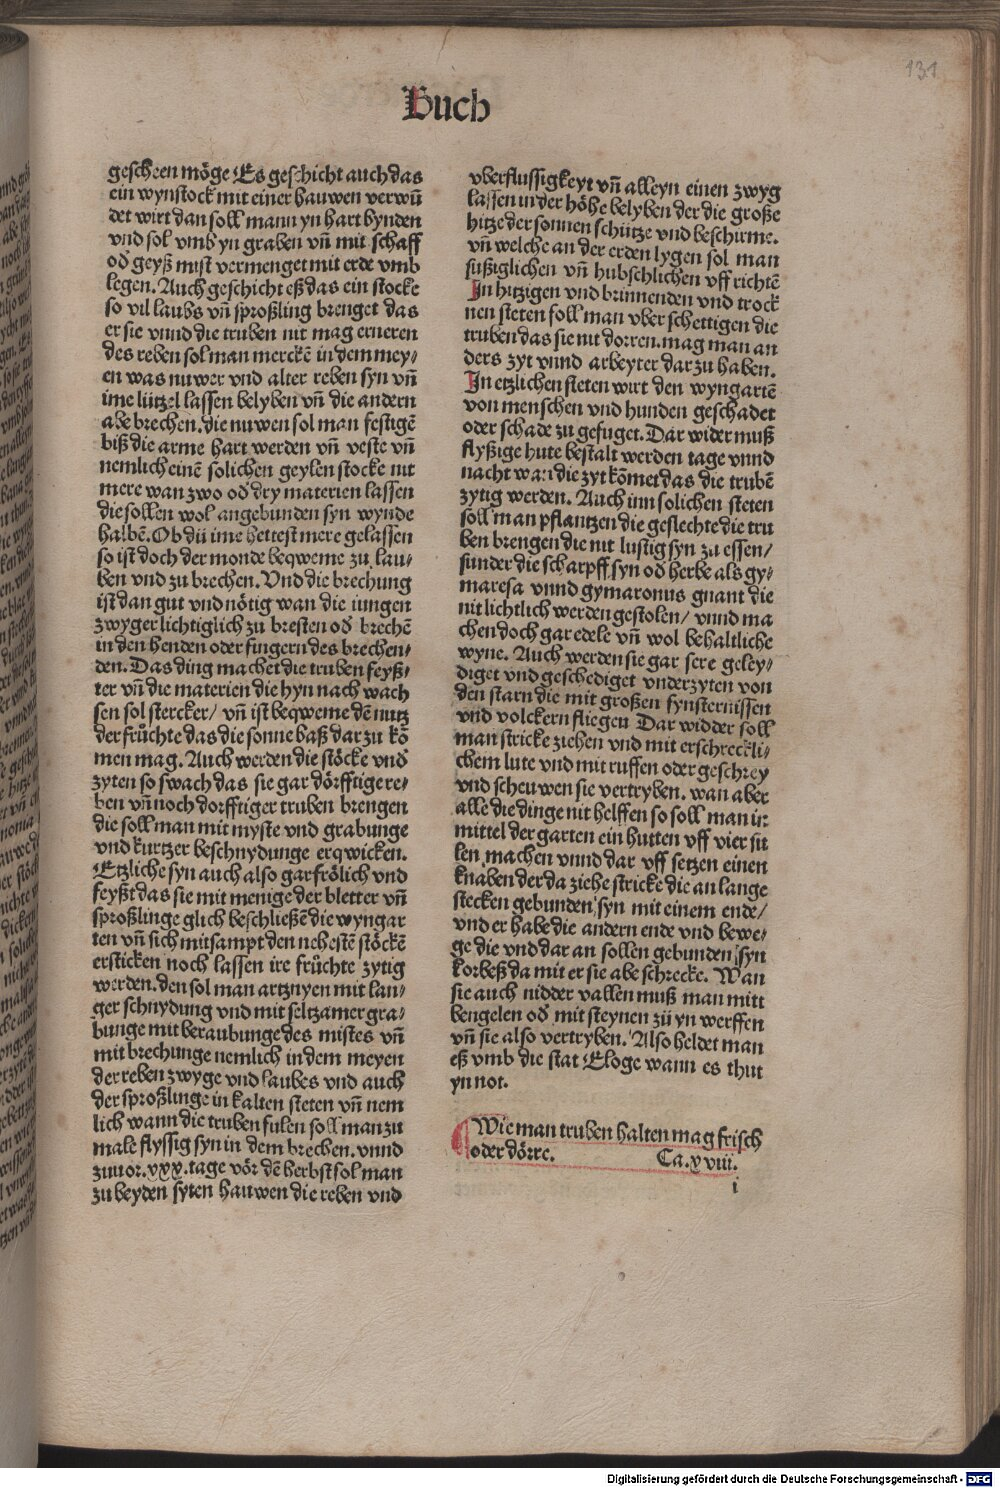 131
Buch
gescheen möge Es geschicht auch das
ein wynstock mit einer hauwen verwū
det wirt dan soll mann yn hart bynden
vnd sol vmb yn graben vn̄ mit schaff
od̄ geyß mist vermenget mit erde vmb
legen. Auch geschicht eß das ein stocke
so vil laubs vn̄ sproßling brenget das
er sie vnnd die truben nit mag erneren
des reben sol man merckē in dem mey⸗
en was nuwer vnd alter reben syn vn̄
ime lützel lassen belyben vn̄ die andern
abe brechen. die nuwen sol man festigē
biß die arme hart werden vn̄ veste vn̄
nemlich einē solichen geylen stocke nit
mere wan zwo od̄ dry materien lassen
die sollen wol angebunden syn wynde
halbē. Ob dü ime hettest mere gelassen
so ist doch der monde beqweme zu lau⸗
ben vnd zu brechen. Vnd die brechung
ist dan gut vnd nötig wan die iungen
zwyger lichtiglich zu bresten od̄ brechē
in den henden oder fingern des brechen⸗
den. Das ding machet die truben feyß⸗
ter vn̄ die materien die hyn nach wach
sen sol stercker/ vn̄ ist beqweme dē nutz
der früchte das die sonne baß dar zu kō
men mag. Auch werden die stöcke vnd̄
zyten so swach das sie gar dörfftige re⸗
ben vn̄ noch dorfftiger truben brengen
die soll man mit myste vnd grabunge
vnd kurtzer beschnydunge erqwicken.
Etzliche syn auch also gar frölich vnd
feyßt das sie mit menige der bletter vn̄
sproßlinge glich beschließē die wyngar
ten vn̄ sich mitsampt den nehestē stöckē
ersticken noch lassen ire früchte zytig
werden. den sol man artznyen mit lan⸗
ger schnydung vnd mit seltzamer gra⸗
bunge mit beraubunge des mistes vn̄
mit brechunge nemlich in dem meyen
der reben zwyge vnd laubes vnd auch
der sproßlinge in kalten steten vn̄ nem
lich wann die truben fulen soll man zu
male flyssig syn in dem brechen. vnnd
zuuor .xxx. tage vör dē herbst sol man
zu beyden syten hauwen die reben vnd
vberflussigkeyt vn̄ alleyn einen zwyg
lassen in der höhe belyben der die große
hitze der sonnen schütze vnd beschirme.
vn̄ welche an der erden lygen sol man
süßiglichen vn̄ hubschlichen vff richtē
In hitzigen vnd brinnenden vnd trock
nen steten soll man vber schettigen die
truben das sie nit dorren. mag man an
ders zyt vnnd arbeyter dar zu haben.
In etzlichen steten wirt den wyngartē
von menschen vnd hunden geschadet
oder schade zu gefuget. Dar wider muß
flyßige hute bestalt werden tage vnnd
nacht wan die zyt kōmet das die trubē
zytig werden. Auch inn solichen steten
soll man pflantzen die geslechte die tru
ben brengen die nit lustig syn zu essen/
sunder die scharpff syn od̄ herbe als gy⸗
maresa vnnd gymaronus gnant die
nit lichtlich werden gestolen/ vnnd ma
chen doch gar edele vn̄ wol behaltliche
wyne. Auch werden sie gar sere geley⸗
diget vnd geschediget vnderzyten von
den starn die mit großen fynsternissen
vnd volckern fliegen Dar widder soll
man stricke ziehen vnd mit erschreckli⸗
chem lute vnd mit ruffen oder geschrey
vnd scheuwen sie vertryben. wan aber
alle die dinge nit helffen so soll man in
mittel der garten ein hutten vff vier sü
len machen vnnd dar vff setzen einen
knaben der da ziehe stricke die an lange
stecken gebunden syn mit einem ende/
vnd er habe die andern ende vnd bewe⸗
ge die vnd dar an sollen gebunden syn
korbeß da mit er sie abe schrecke. Wan
sie auch nidder vallen muß man mitt
bengelen od̄ mit steynen zü yn werffen
vn̄ sie also vertryben. Also heldet man
eß vmb die stat Eloge wann es thut
yn not.
Wie man truben halten mag frisch
oder dörre. Ca. xviii.
i
Digitalisierung gefördert durch die Deutsche Forschungsgemeinschaft - DFG